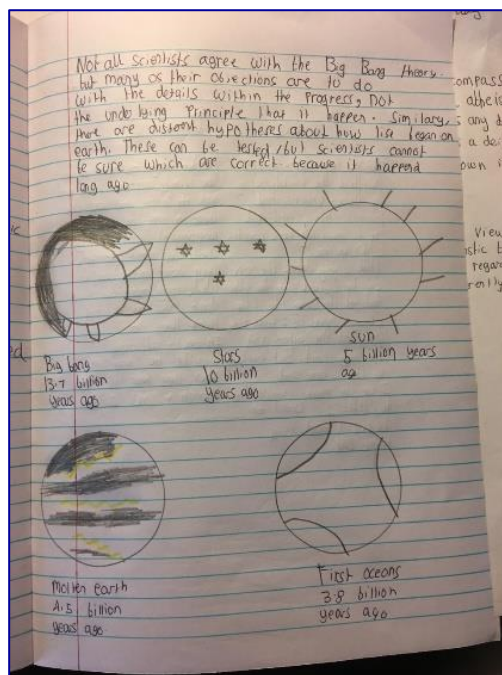 Not all scientists agree with the Big Bang theory.
but many os their objections are to do
with the details within the Progress, not
the underlying Principle that it happen. Similary,
there are different hypotheses about how lise began on
earth. These can be tested, but scientists cannot
be sure which are correct. because it happend
long ago
Big bang
13.7 billion
years ago
Stars
10 billion
years ago
Sun
5 billion years
ago
Molten earth
4.5 billion
years ago
First oceans
3.8 billion
years ago
ompass
atheis
any d
a de
own i
view
stic b
regar